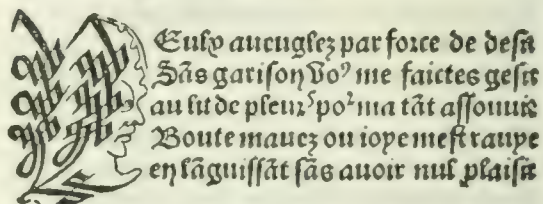 YEulx aueuglez par force de desir
Sãs garison vo⁹ me faictes gesir
au lit de pleurˢ poʳ ma tãt assouuir
Boute mauez ou ioye mest rauye
en lãguissãt sãs auoir nul plaisir